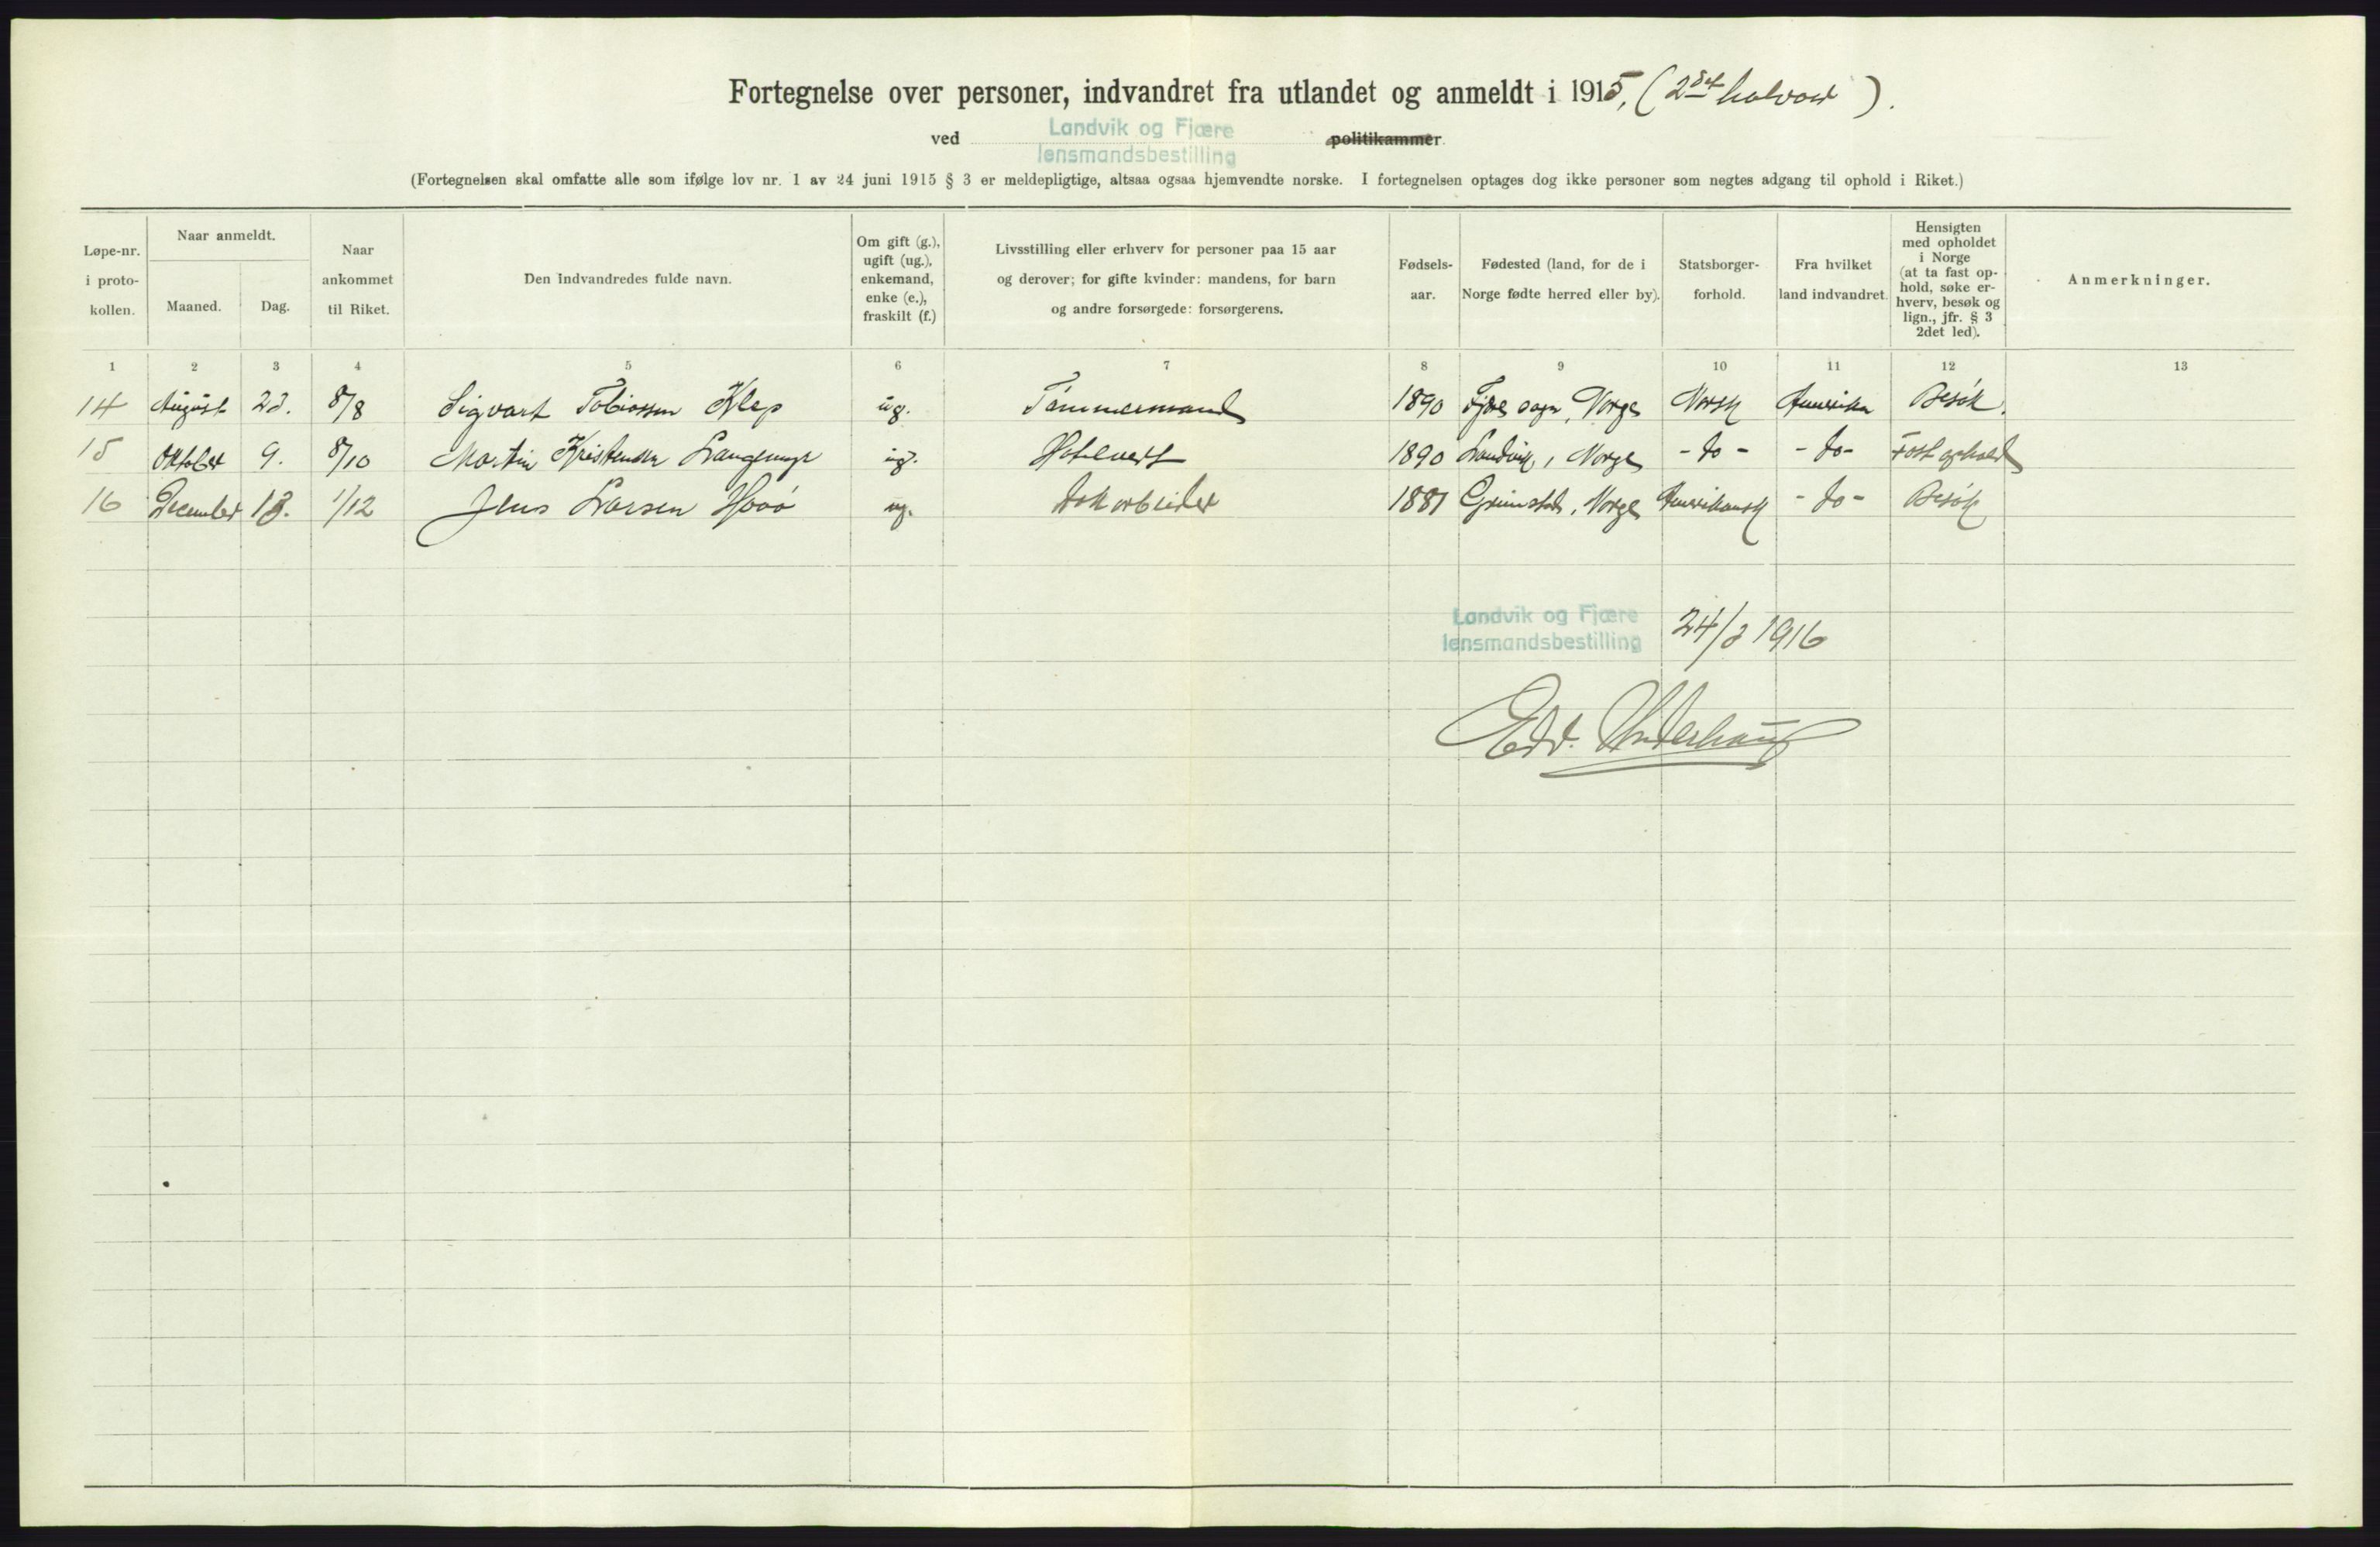 Fortegnelse over personer, indvandret fra utlandet og anmeldt i 1915, (2det halvaar).
ved Landvik og Fjære lensmandsbestilling politikammer.
(Fortegnelsen skal omfatte alle som ifølge lov nr. 1 av 24 juni 1915 § 3 er meldepligtige, altsaa ogsaa hjemvendte norske. I fortegnelsen optages dog ikke personer som negtes adgang til ophold i Riket.)
Løpe-nr. i proto- kollen.
Naar anmeldt.
Maaned.
Dag.
Naar ankommet til Riket.
Den indvandredes fulde navn.
Om gift (g.), ugift (ug.), enkemand, enke (e.), fraskilt (f.)
Livsstilling eller erhverv for personer paa 15 aar og derover; for gifte kvinder: mandens, for barn og andre forsørgede: forsørgerens.
Fødsels- aar.
Fødested (land, for de i Norge fødte herred eller by).
Statsborger- forhold.
Fra hvilket land indvandret.
Hensigten med opholdet i Norge (at ta fast op- hold, søke er- hverv, besøk og lign., jfr. § 3 2det led).
Anmerkninger.
1 2 3 4 5 6 7 8 9 10 11 12 13
14 August 23. 8/8 Sigvart Tobiassen Klep ug. Tømmermand 1890 Fjære sogn, Norge Norsk Amerika Besøk.
15 Oktober 9. 8/10 Martin Kristensen Langemyr ug. Hotelvert 1890 Landvik, Norge - do - - do - Fast ophold
16 December 13. 1/12 Jens Larsen Haaø ug. Dokarbeider 1881 Grimstad, Norge Amerikansk - do - Besøk
Landvik og Fjære
lensmandsbestilling 24/3 1916
Edv.